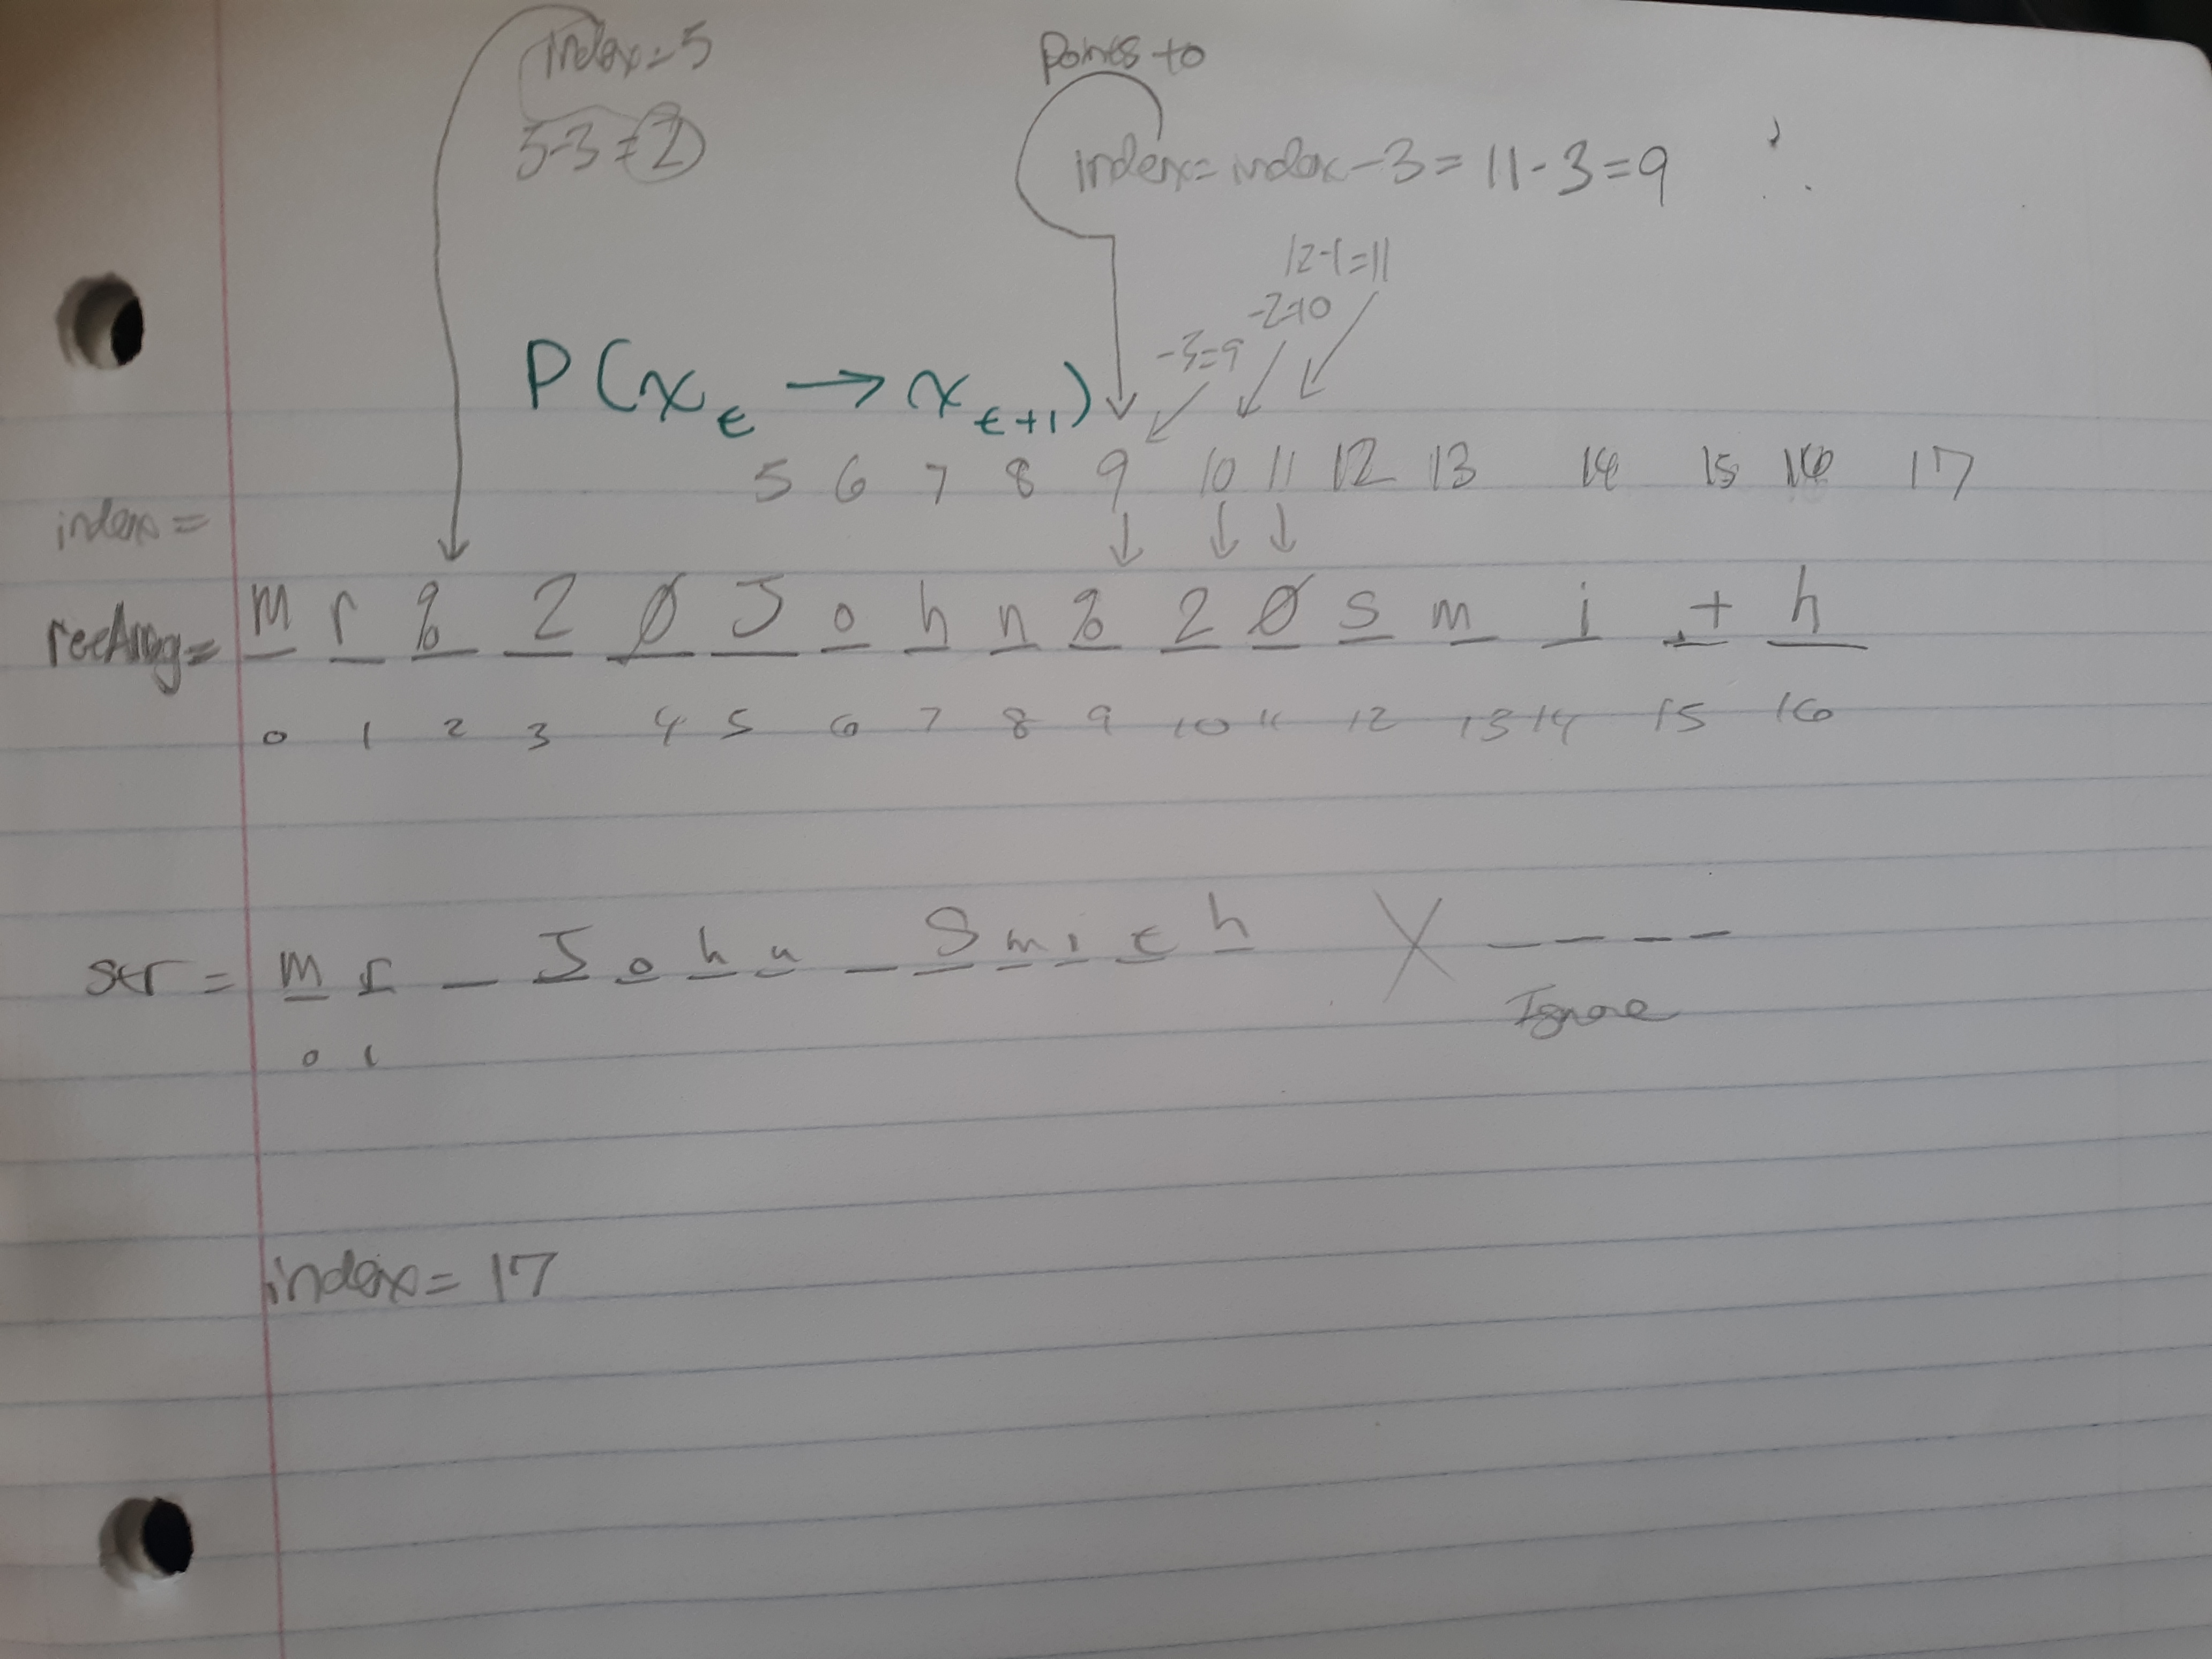 index=5
5-3=2
points to
index=index-3=11-3=9
12-1=11
-2=10
-3=9
P(x t → x t+1)
5 6 7 8 9 10 11 12 13 14 15 16 17
index =
m r % 2 0 J o h n % 2 0 s m i t h
0 1 2 3 4 5 6 7 8 9 10 11 12 13 14 15 16
str = m r _ J o h n _ S m i t h X _ _ _ _
Ignore
0 1
index= 17